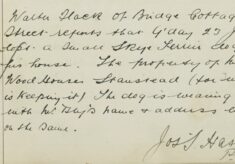 Walter Slack of Bridge Cottage
Street reports that Y'day 27 J
left a small Skye Terrier dog
his house. The property of M
Wood House Stanstead (
is keeping it) The dog is wearing
with Mr. name & address
on the same.
Jos. S Has